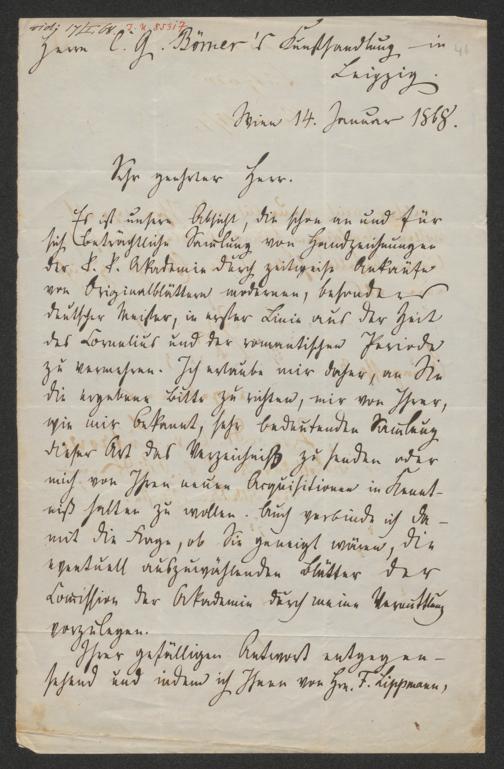 J. N. 85317
Herrn C. G. Börner's Kunsthandlung in
Leipzig.
Wien 14. Januar 1868.
Sehr geehrter Herr.
Es ist unsere Absicht, die schon an und für
sich beträchtliche Samlung von Handzeichnungen
der k. k. Akademie durch zeitweise Ankäufe
von Originalblättern modernen, besonders
deutscher Meister, in erster Linie aus der Zeit
des Cornelius und der romantischen Periode
zu vermehren. Ich erlaube mir daher, an Sie
die ergebene Bitte zu richten, mir von Ihrer,
wie mir bekannt, sehr bedeutenden Samlung
dieser Art das Verzeichniß zu senden oder
mich von Ihren neuen Acquisitionen in Kennt-
niß halten zu wollen. Auch verbinde ich da-
mit die Frage, ob Sie geneigt wären, die
eventuell auszuwählenden Blätter der
Comission der Akademie durch meine Vermittlung
vorzulegen.
Ihrer gefälligen Antwort entgegen-
sehend und indem ich Ihnen von Hrn. F. Lippmann,